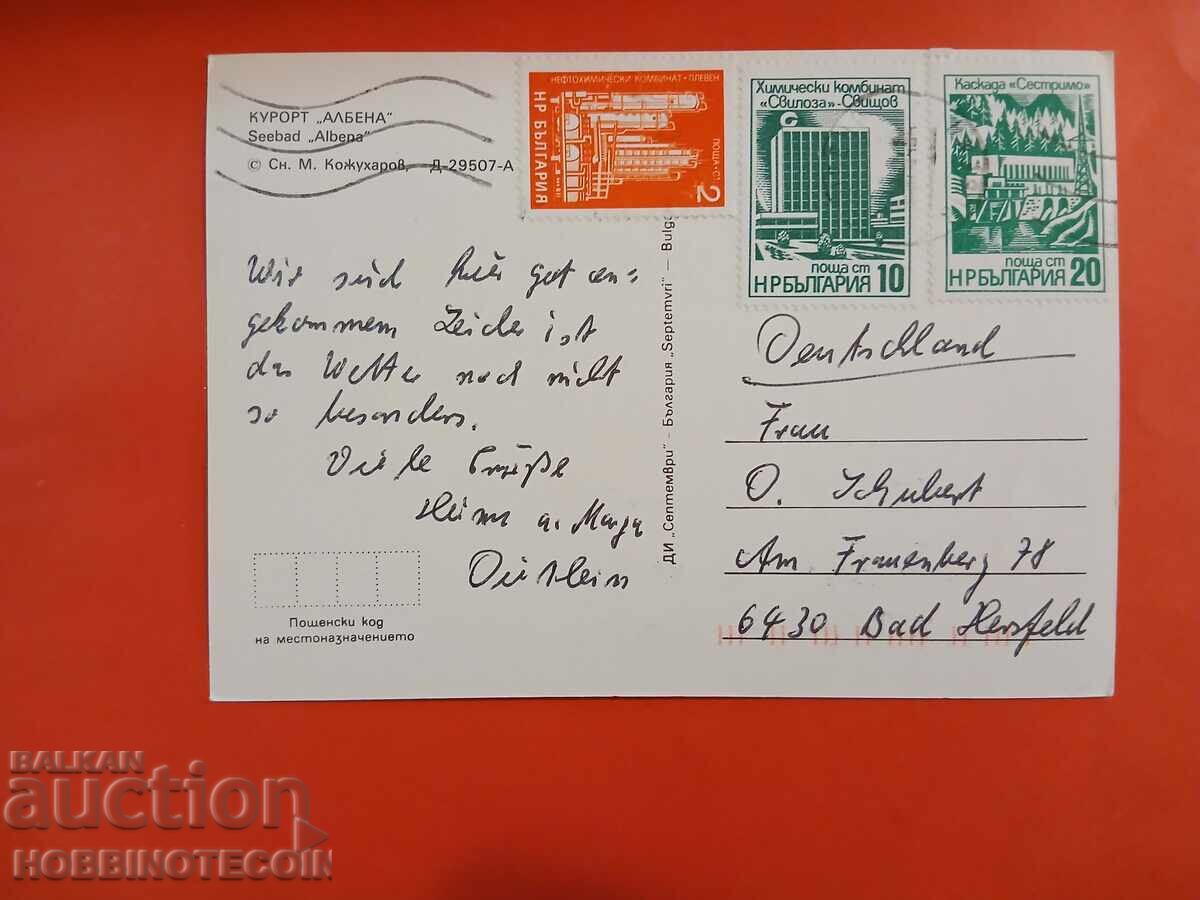 КУРОРТ „АЛБЕНА“
Seebad „Albena“
© Сн. М. Кожухаров, Д-29507-А
НЕФТОХИМИЧЕСКИ КОМБИНАТ • ПЛЕВЕН
НР БЪЛГАРИЯ
ПОЩА • СТ
2
Химически комбинат
„Свилоза“-Свищов
поща ст
НРБЪЛГАРИЯ 10
Каскада „Сестримо“
поща ст
НРБЪЛГАРИЯ 20
Wir sind hier gut an=
gekommen Leider ist
das Wetter noch nicht
so besonders.
Viele Grüße
u.
ДИ „Септември“ – България „Septemvri“ – Bulg
Deutschland
Frau
O. Schubert
Am Frauenberg 78
6430 Bad Hersfeld
Пощенски код
на местоназначението
BALKAN
auction
HOBBINOTECOIN